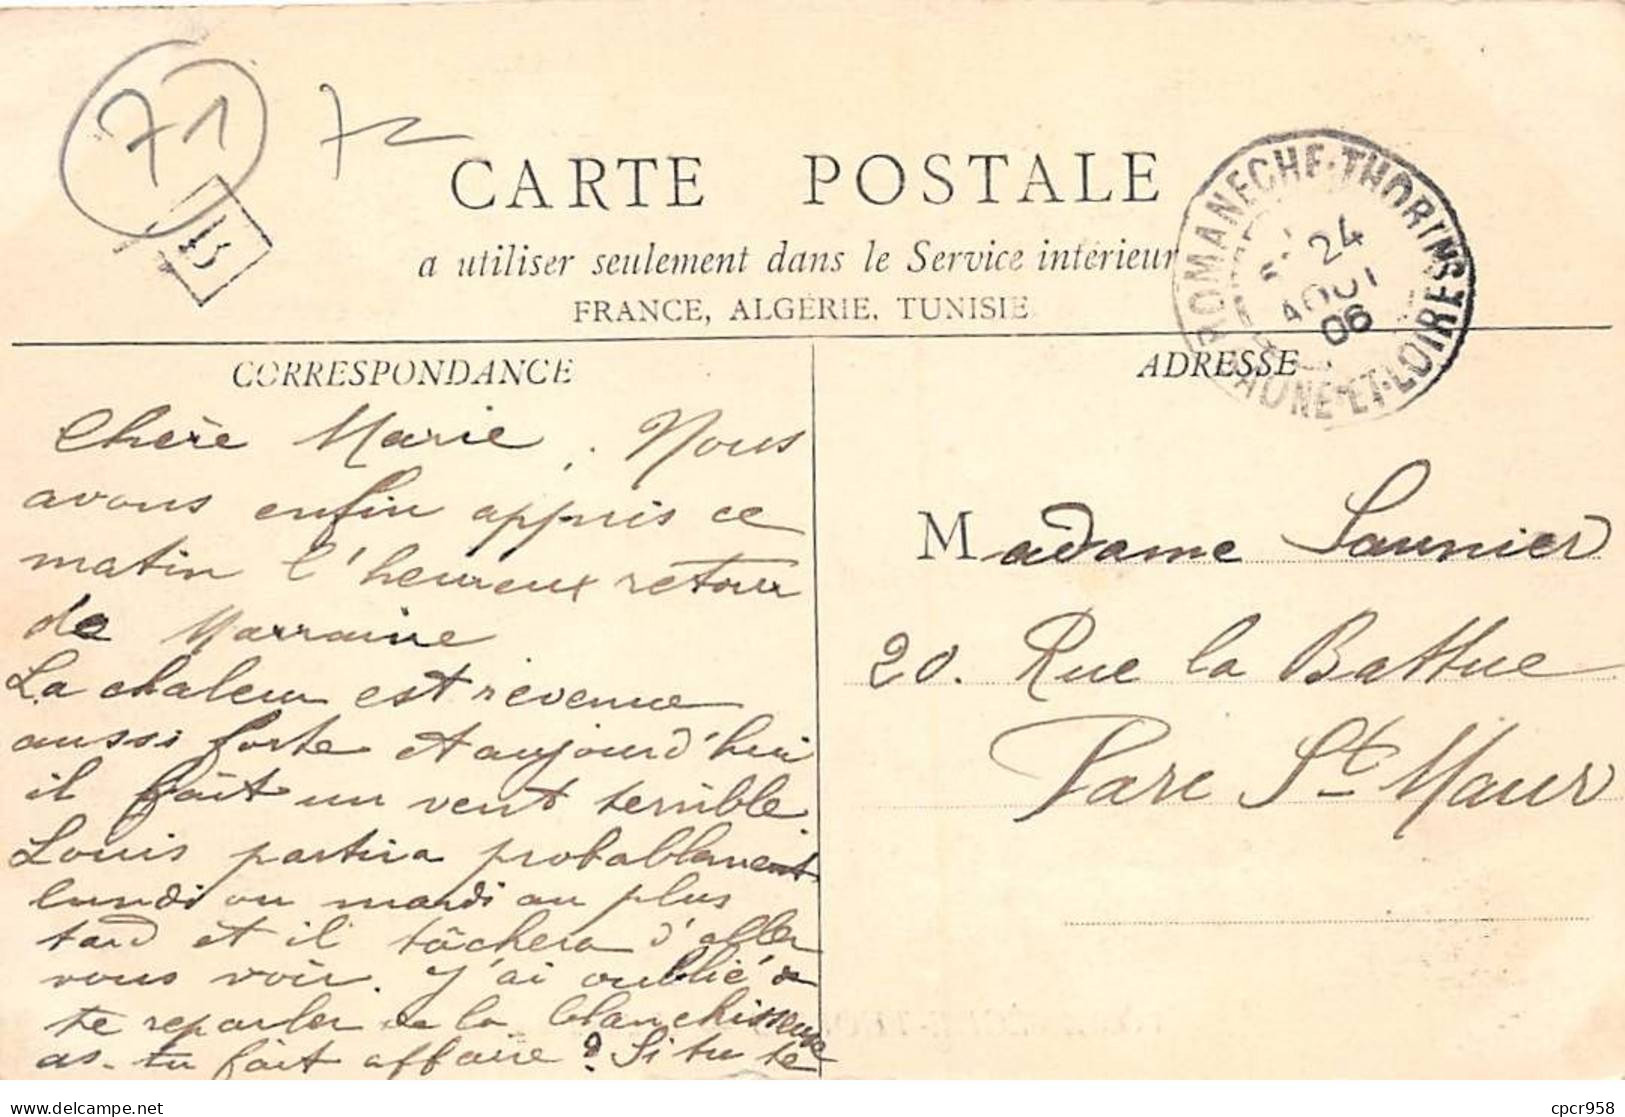 71
72
B
CARTE POSTALE
a utiliser seulement dans le Service intérieur
FRANCE, ALGÉRIE, TUNISIE
ROMANECHE-THORINS
24
AOUT
06
SAONE-ET-LOIRE
CORRESPONDANCE
ADRESSE
Chère Marie. Nous
avons enfin appris ce
matin l'heureux retour
de Marraine
La chaleur est revenue
aussi forte et aujourd'hui
il fait un vent terrible.
Louis partira probablement
lundi ou mardi au plus
tard et il tâchera d'aller
vous voir. J'ai oublié de
te reparler de la blanchisseuse
as-tu fait affaire? Si tu te
Madame Saunier
20. Rue la Battue
Parc St Maur
cpcr958